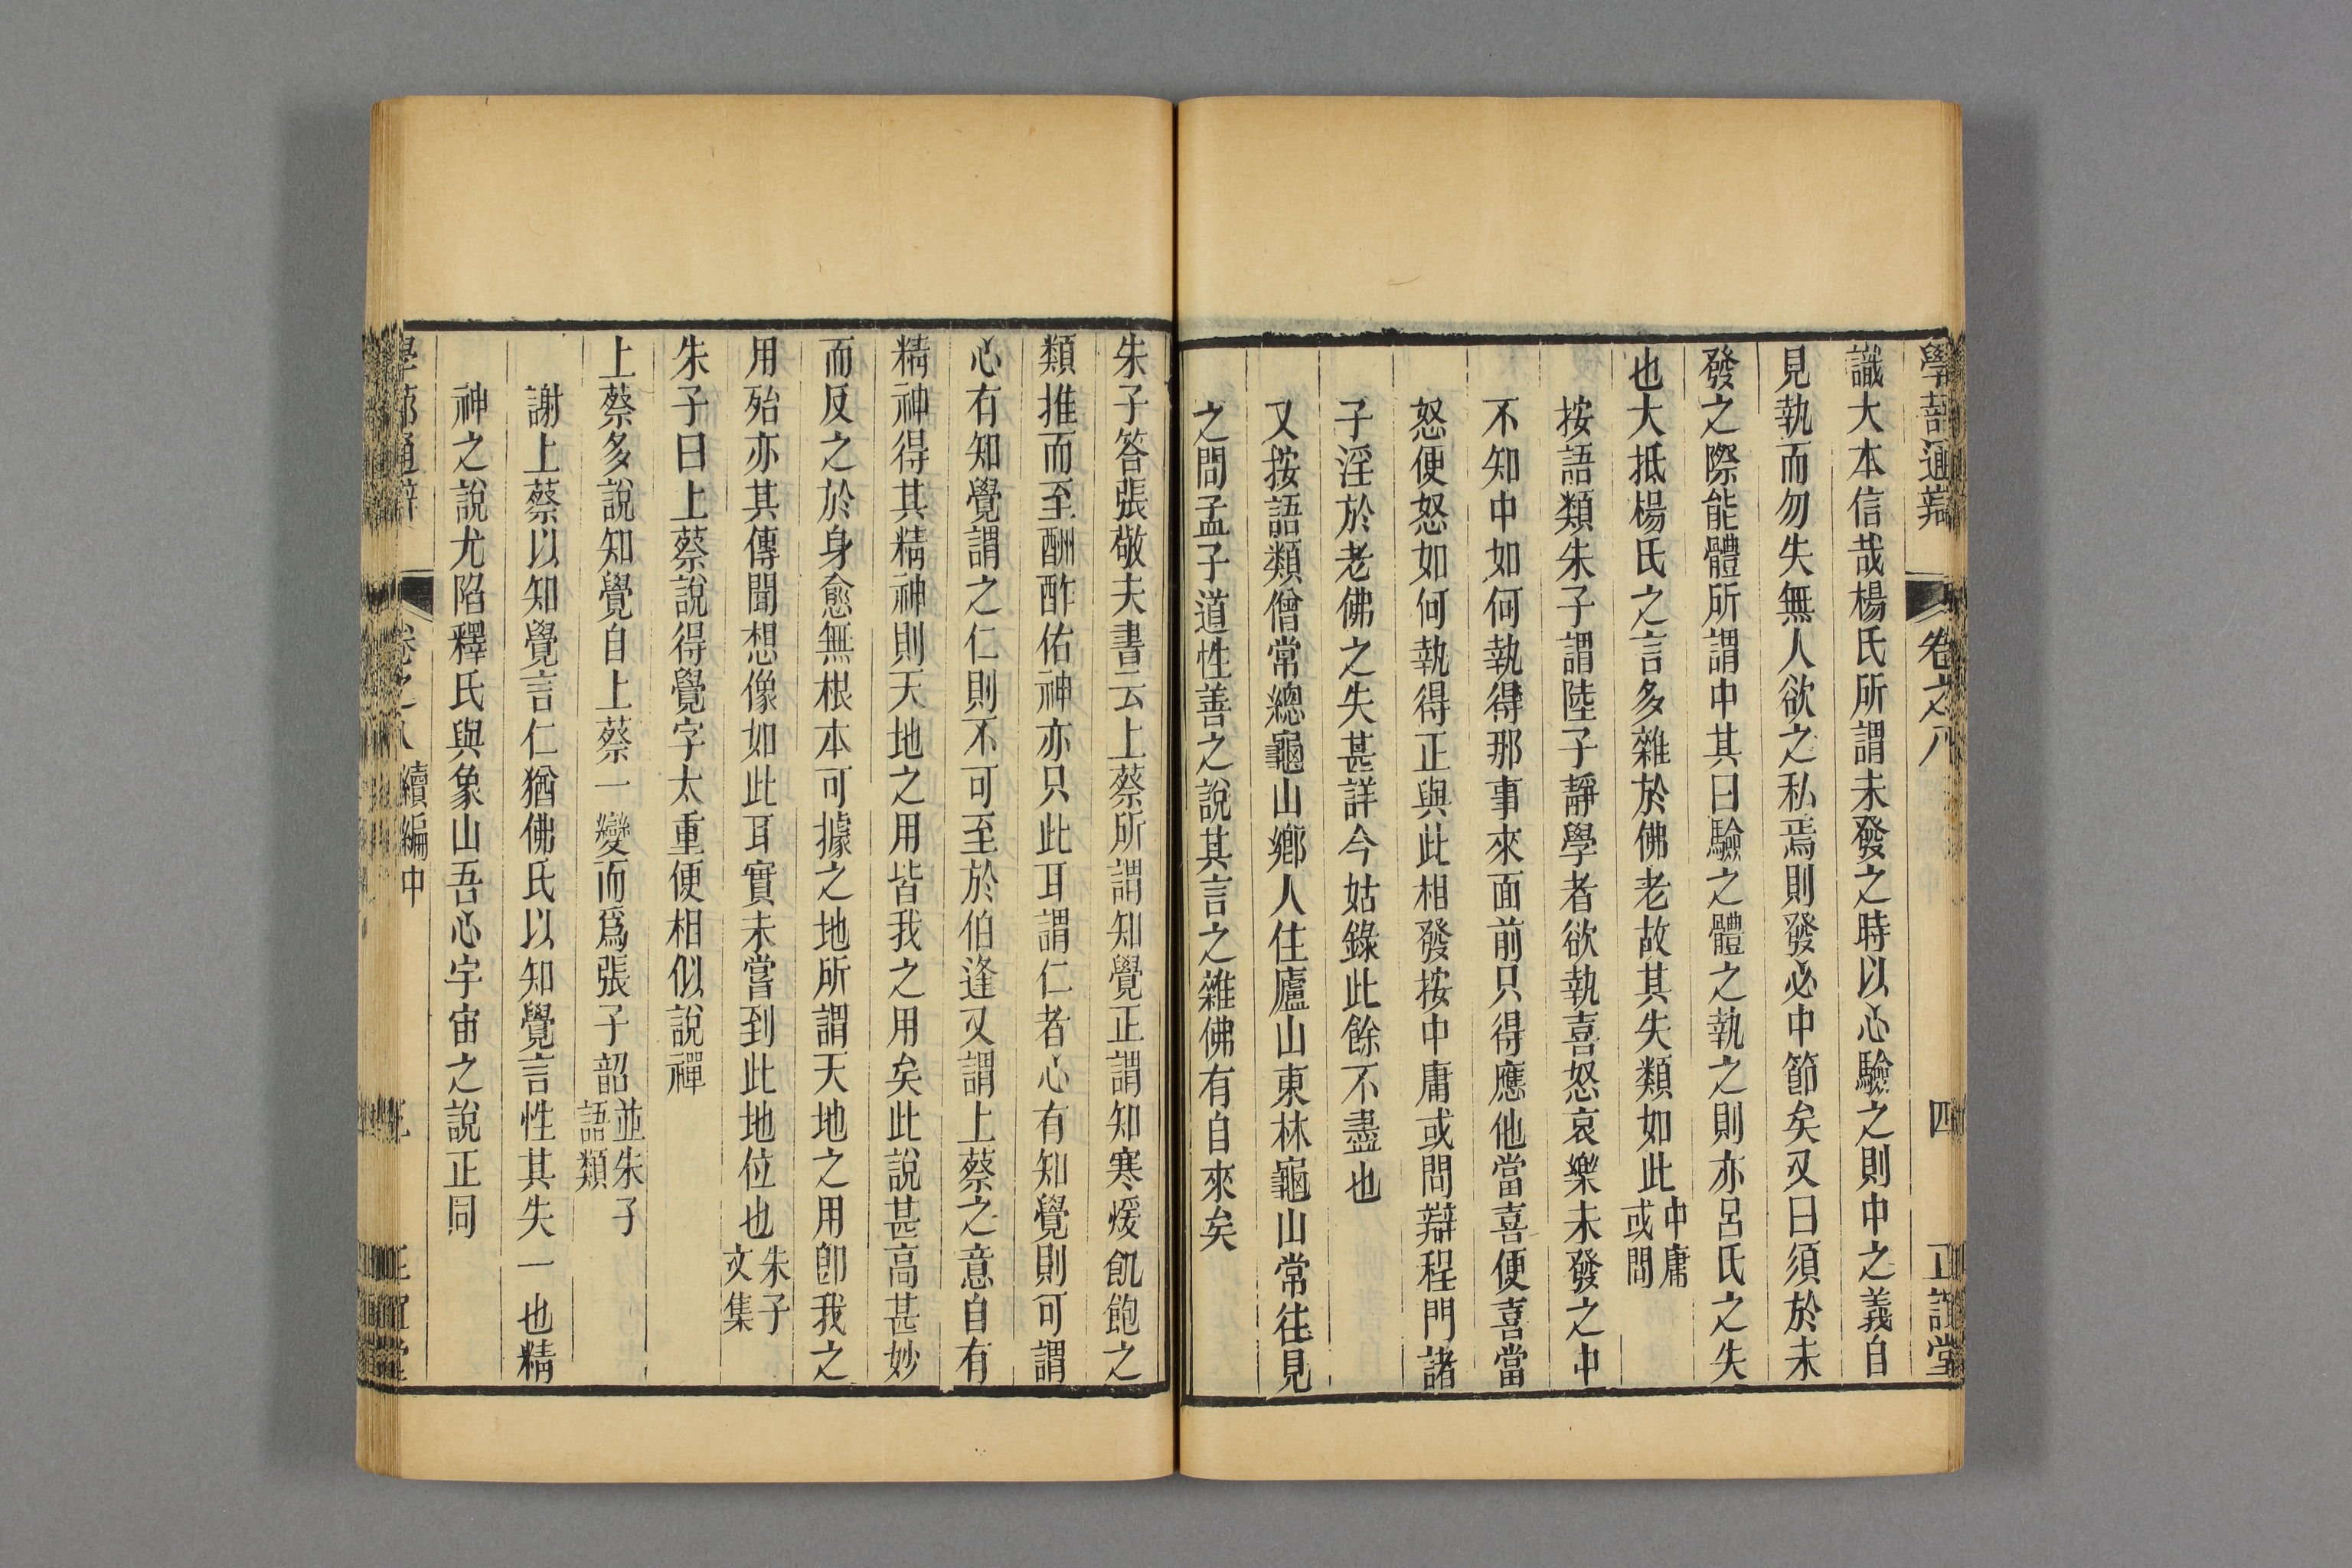 學蔀通辯 卷之八 四 正誼堂
識大本信哉楊氏所謂未發之時以心驗之則中之義自
見執而勿失無人欲之私焉則發必中節矣又曰須於未
發之際能體所謂中其曰驗之體之執之則亦呂氏之失
也大抵楊氏之言多雜於佛老故其失類如此中庸或問
按語類朱子謂陸子靜學者欲執喜怒哀樂未發之中
不知中如何執得那事來面前只得應他當喜便喜當
怒便怒如何執得正與此相發按中庸或問辯程門諸
子淫於老佛之失甚詳今姑錄此餘不盡也
又按語類僧常總龜山鄉人住廬山東林龜山常往見
之問孟子道性善之說其言之雜佛有自來矣
朱子答張敬夫書云上蔡所謂知覺正謂知寒煖飢飽之
類推而至酬酢佑神亦只此耳謂仁者心有知覺則可謂
心有知覺謂之仁則不可至於伯逢又謂上蔡之意自有
精神得其精神則天地之用皆我之用矣此說甚高甚妙
而反之於身愈無根本可據之地所謂天地之用卽我之
用殆亦其傳聞想像如此耳實未嘗到此地位也朱子文集
朱子曰上蔡說得覺字太重便相似說禪
上蔡多說知覺自上蔡一變而爲張子韶並朱子語類
謝上蔡以知覺言仁猶佛氏以知覺言性其失一也精
神之說尤陷釋氏與象山吾心宇宙之說正同
學蔀通辯 卷之八 續編中 正誼堂